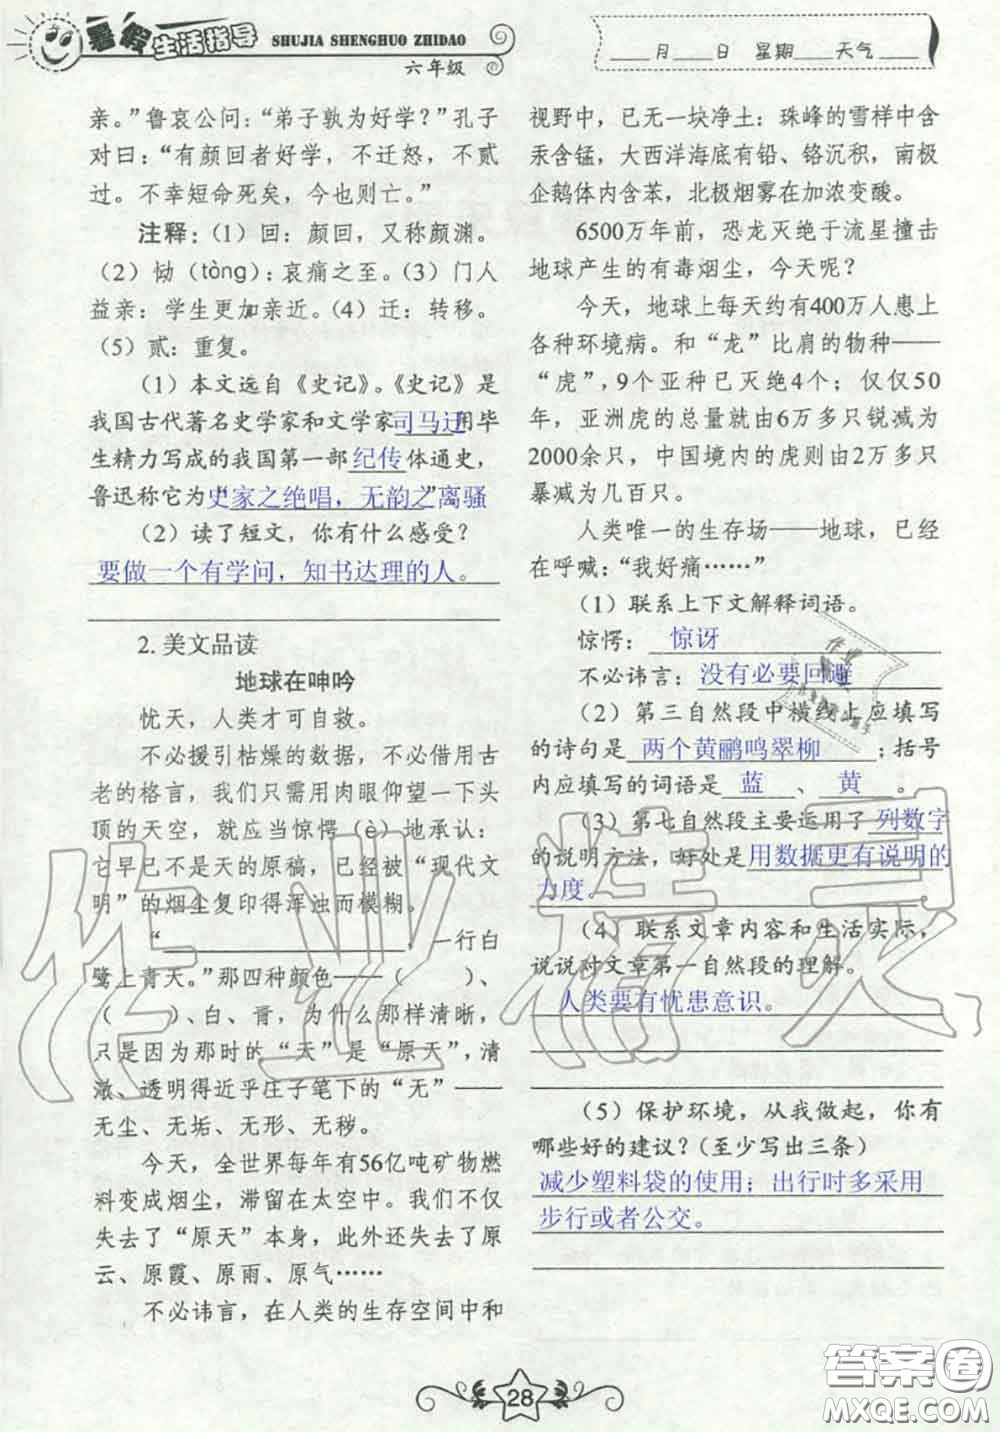 暑假生活指导
SHUJIA SHENGHUO ZHIDAO
六年级
____月____日 星期____天气____
亲。”鲁哀公问：“弟子孰为好学？”孔子
对曰：“有颜回者好学，不迁怒，不贰
过。不幸短命死矣，今也则亡。”
注释：(1）回：颜回，又称颜渊。
(2）恸（tòng）：哀痛之至。(3）门人
益亲：学生更加亲近。(4）迁：转移。
(5）贰：重复。
(1）本文选自《史记》。《史记》是
我国古代著名史学家和文学家司马迁用毕
生精力写成的我国第一部纪传体通史，
鲁迅称它为“史家之绝唱，无韵之离骚
(2）读了短文，你有什么感受？
要做一个有学问，知书达理的人。
2. 美文品读
地球在呻吟
忧天，人类才可自救。
不必援引枯燥的数据，不必借用古
老的格言，我们只需用肉眼仰望一下头
顶的天空，就应当惊愕（è）地承认：
它早已不是天的原稿，已经被“现代文
明”的烟尘复印得浑浊而模糊。
“____________________，一行白
鹭上青天。”那四种颜色——（　　）、
（　　）、白、青，为什么那样清晰，
只是因为那时的“天”是“原天”，清
澈、透明得近乎庄子笔下的“无”——
无尘、无垢、无形、无秽。
今天，全世界每年有56亿吨矿物燃
料变成烟尘，滞留在太空中。我们不仅
失去了“原天”本身，此外还失去了原
云、原霞、原雨、原气……
不必讳言，在人类的生存空间中和
视野中，已无一块净土：珠峰的雪样中含
汞含锰，大西洋海底有铅、铬沉积，南极
企鹅体内含苯，北极烟雾在加浓变酸。
6500万年前，恐龙灭绝于流星撞击
地球产生的有毒烟尘，今天呢？
今天，地球上每天约有400万人患上
各种环境病。和“龙”比肩的物种——
“虎”，9个亚种已灭绝4个；仅仅50
年，亚洲虎的总量就由6万多只锐减为
2000余只，中国境内的虎则由2万多只
暴减为几百只。
人类唯一的生存场——地球，已经
在呼喊：“我好痛……”
(1）联系上下文解释词语。
惊愕：惊讶
不必讳言：没有必要回避
(2）第三自然段中横线上应填写
的诗句是 两个黄鹂鸣翠柳 ；括号
内应填写的词语是 蓝 、 黄 。
(3）第七自然段主要运用了 列数字
的说明方法，好处是 用数据更有说明的
力度。
(4）联系文章内容和生活实际，
说说对文章第一自然段的理解。
人类要有忧患意识。
(5）保护环境，从我做起，你有
哪些好的建议？（至少写出三条）
减少塑料袋的使用；出行时多采用
步行或者公交。
28
作业精灵
答案圈
MXQE.COM